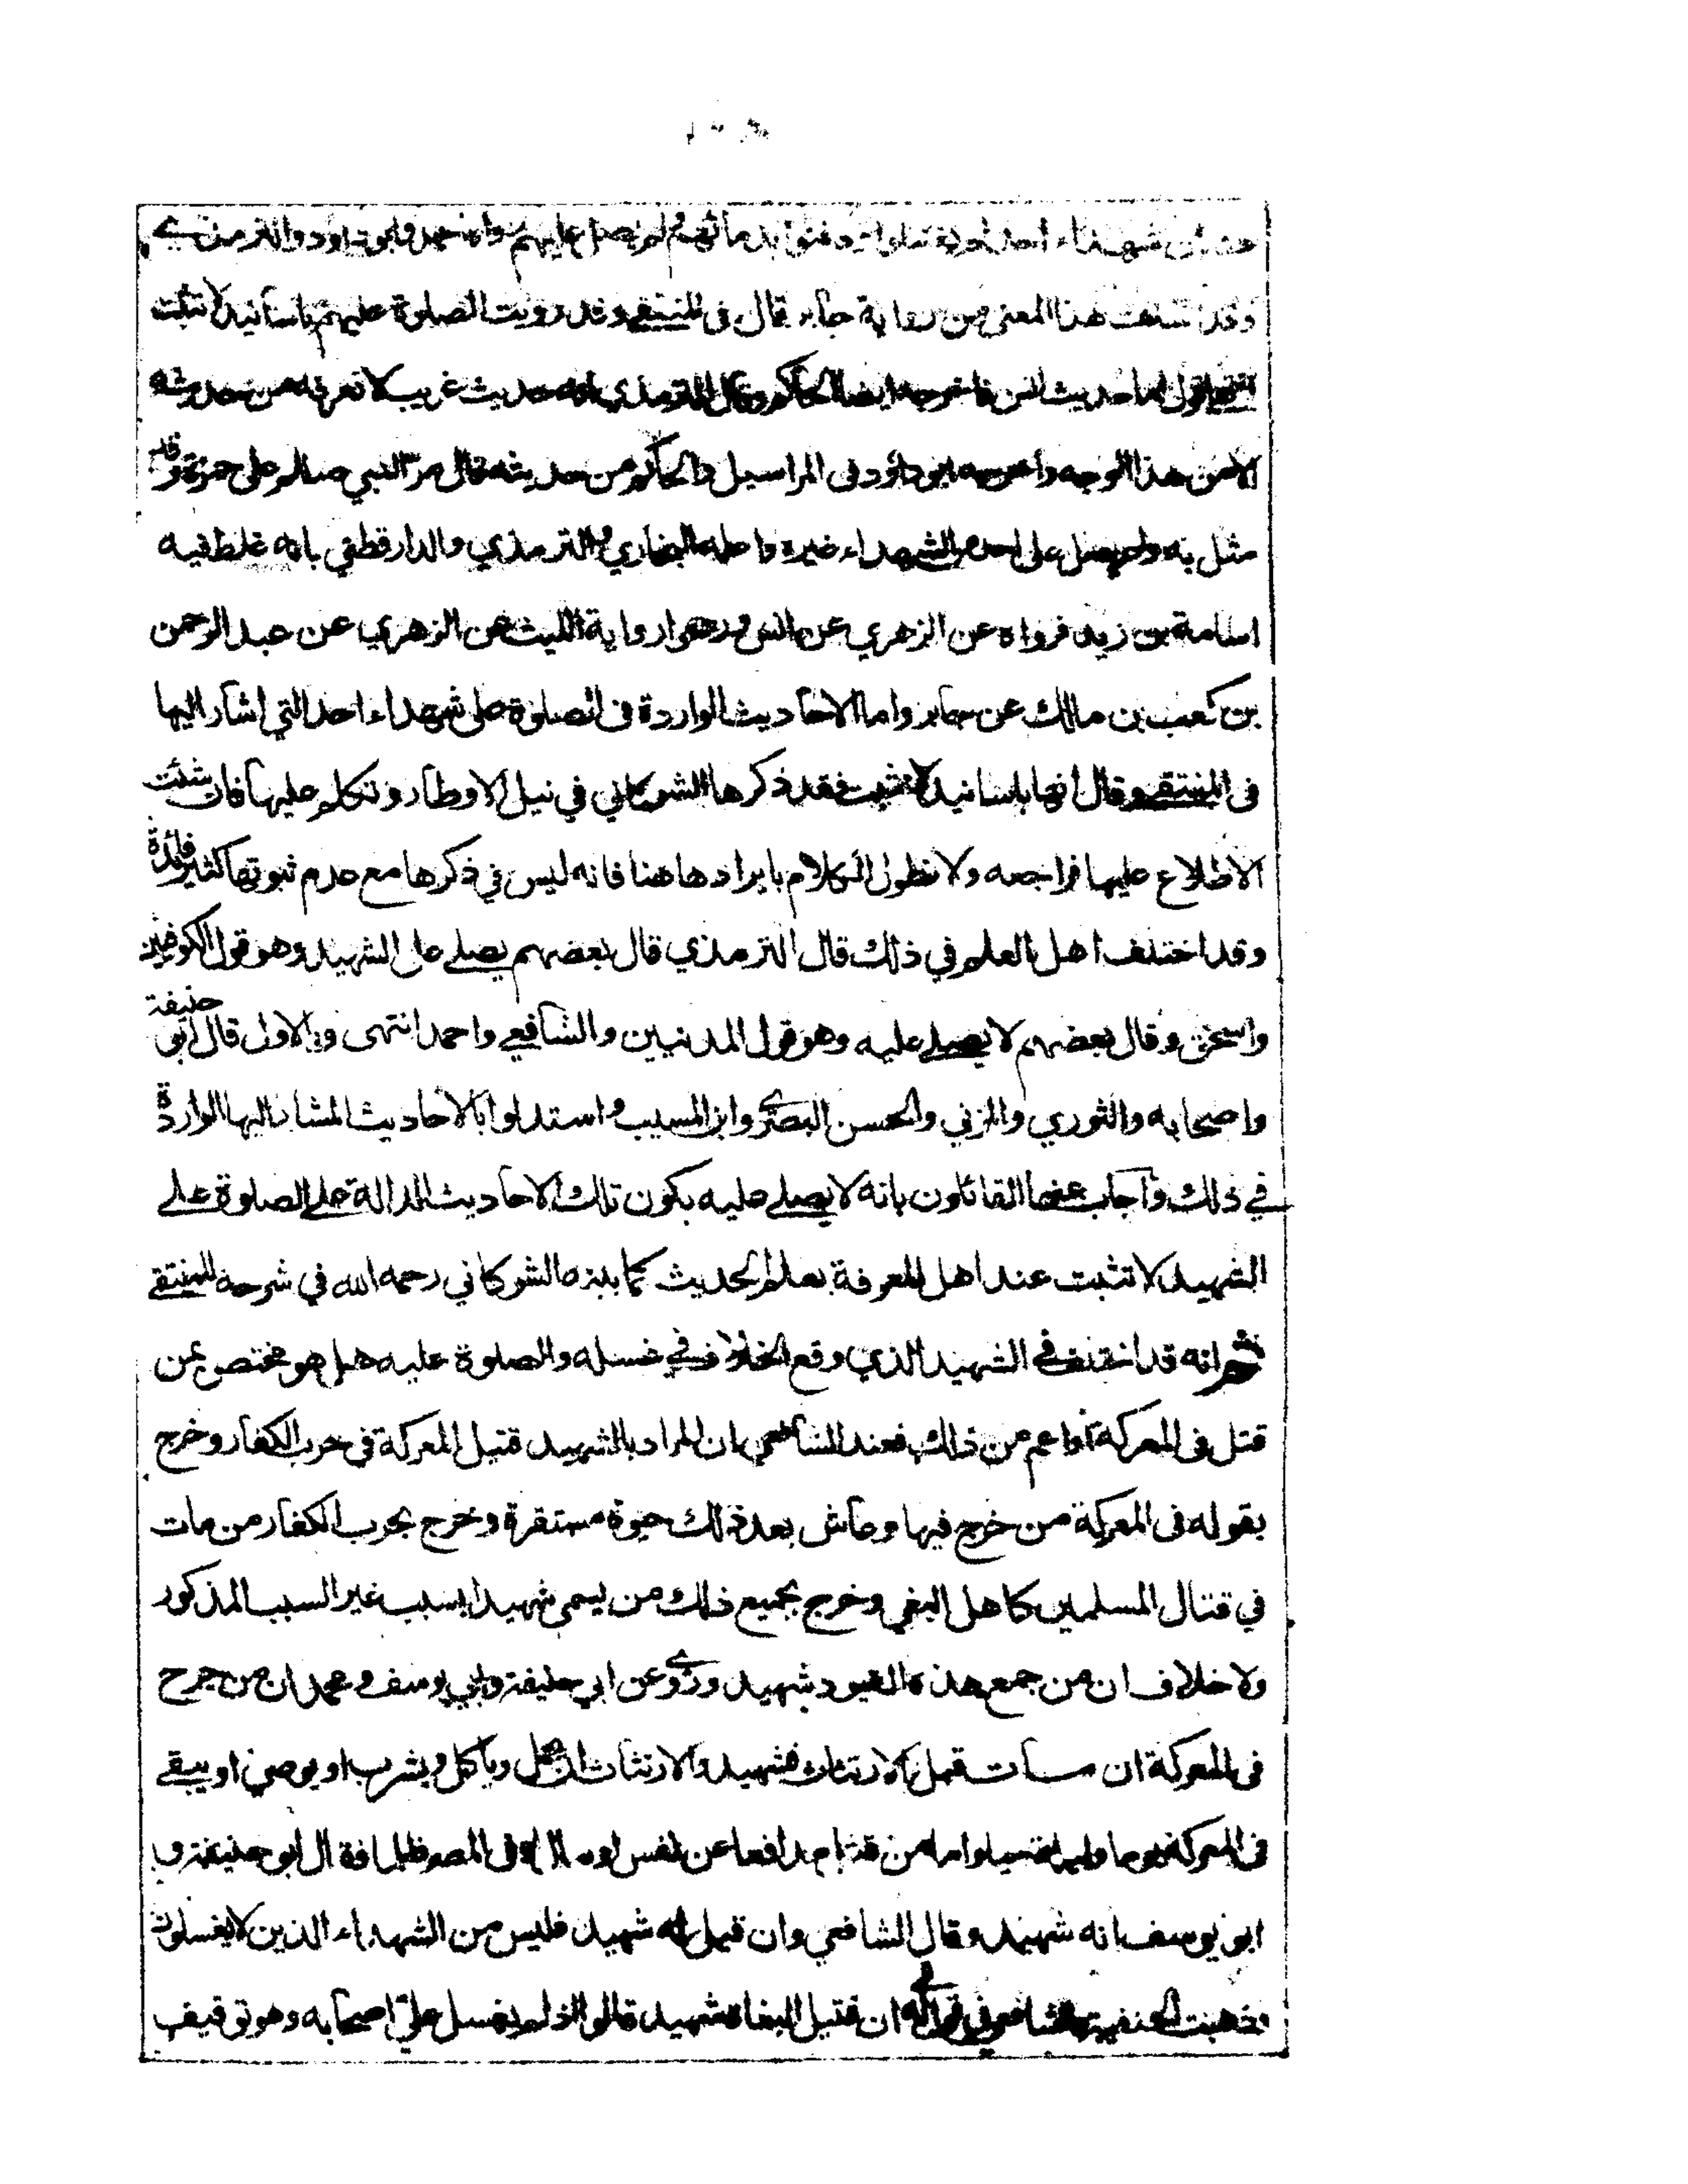 شهداء احد لم يغسلوا ودفنوا بدمائهم ولم يصل عليهم رواه احمد وابو داود والترمذي
وقد هذا المعنى من رواية جابر قال في المنتقى وقد رويت الصلوة عليهم باسانيد لا تثبت
انتهى اقول اما حديث انس فاخرجه ايضا الحاكم وقال الترمذي انه حديث غريب لا نعرفه من حديثه
الا من هذا الوجه واخرجه ابو داؤد في المراسيل والحاكم من حديثه قال مر النبي صللم على حمزة وقد
مثل به ولم يصل على احد من الشهداء غيره واعله البخاري والترمذي والدارقطني بانه غلط فيه
اسامة بن زيد فرواه عن الزهري عن انس ورجحوا رواية الليث عن الزهري عن عبد الرحمن
بن كعب بن مالك عن جابر واما الاحاديث الواردة في الصلوة على شهداء احد التي اشار اليها
في المنتقى وقال انها باسانيد لا تثبت فقد ذكرها الشوكاني في نيل الاوطار وتكلم عليها فان شئت
الاطلاع عليها فراجعه ولا نطول الكلام بايرادها هنا فانه ليس في ذكرها مع عدم ثبوتها كثير فائدة
وقد اختلف اهل العلم في ذلك قال الترمذي قال بعضهم يصلى على الشهيد وهو قول الكوفيين
واسحق وقال بعضهم لا يصلى عليه وهو قول المدنيين والشافعي واحمد انتهى وبالاول قال ابي حنيفة
واصحابه والثوري والمزني والحسن البصري وابن المسيب واستدلوا بالاحاديث المشار اليها الواردة
في ذلك وآجاب عنها القائلون بانه لا يصلى عليه بكون تلك الاحاديث الدالة على الصلوة على
الشهيد لا تثبت عند اهل المعرفة بعلم الحديث كما بينه الشوكاني رحمه الله في شرحه للمنتقى
ثم انه قد اختلف في الشهيد الذي وقع الخلاف في غسله والصلوة عليه هل هو مختص بمن
قتل في المعركة او اعم من ذلك فعند الشافعي ان المراد بالشهيد قتيل المعركة في حرب الكفار وخرج
بقوله في المعركة من خرج فيها وعاش بعد ذلك حيوة مستقرة وخرج بحرب الكفار من مات
في قتال المسلمين كاهل البغي وخرج بجميع ذلك من يسمى شهيدا بسبب غير السبب المذكور
ولا خلاف ان من جمع هذه القيود شهيد وروي عن ابي حنيفة وابي يوسف ومحمد ان من جرح
في المعركة ان مات قبل الارتثاث فشهيد والارتثاث ان يحمل وياكل ويشرب او يوصي او يبقى
في المعركة يوما وليلة حيا واما من قتل مدافعا عن نفس او مال او في المصر ظلما فقال ابو حنيفة و
ابو يوسف انه شهيد وقال الشافعي وان قيل له شهيد فليس من الشهداء الذين لا يغسلون
وذهبت الحنفية والشافعي في قول له ان قتيل البغاة شهيد قالوا اذ لم يغسل علي اصحابه وهو توقيف